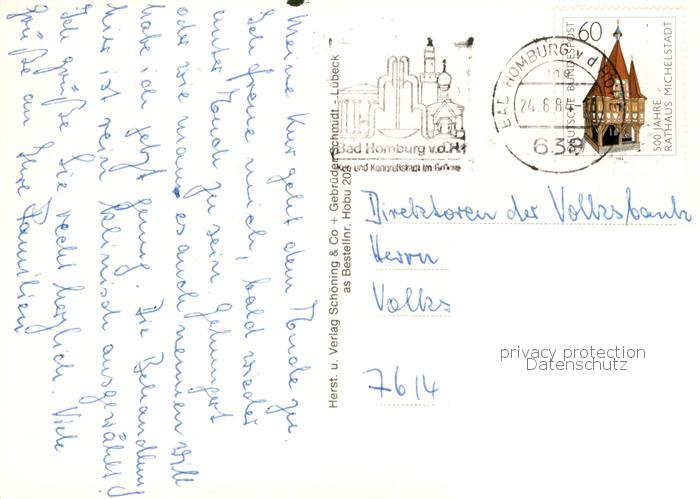 Meine Kur geht dem Ende zu.
Ich freue mich, bald wieder
unter Euch zu sein. Gehungert
oder wie man es auch nennen will
habe ich jetzt genug. Die Behandlung
hier ist rein klinisch ausgewählt!
Ich grüße Sie recht herzlich. Viele
Grüße an Ihre Familien
Herst. u. Verlag Schöning & Co + Gebrüder Schmidt - Lübeck
as Bestellnr. Hobu 205
Bad Homburg v.d.H.
Kur und Kongreßstadt im Grünen
BAD HOMBURG v d
24.6.8
60
DEUTSCHE BUNDESPOST
500 JAHRE
RATHAUS MICHELSTADT
Direktoren der Volksbank
Herrn
Volks
7614
privacy protection
Datenschutz